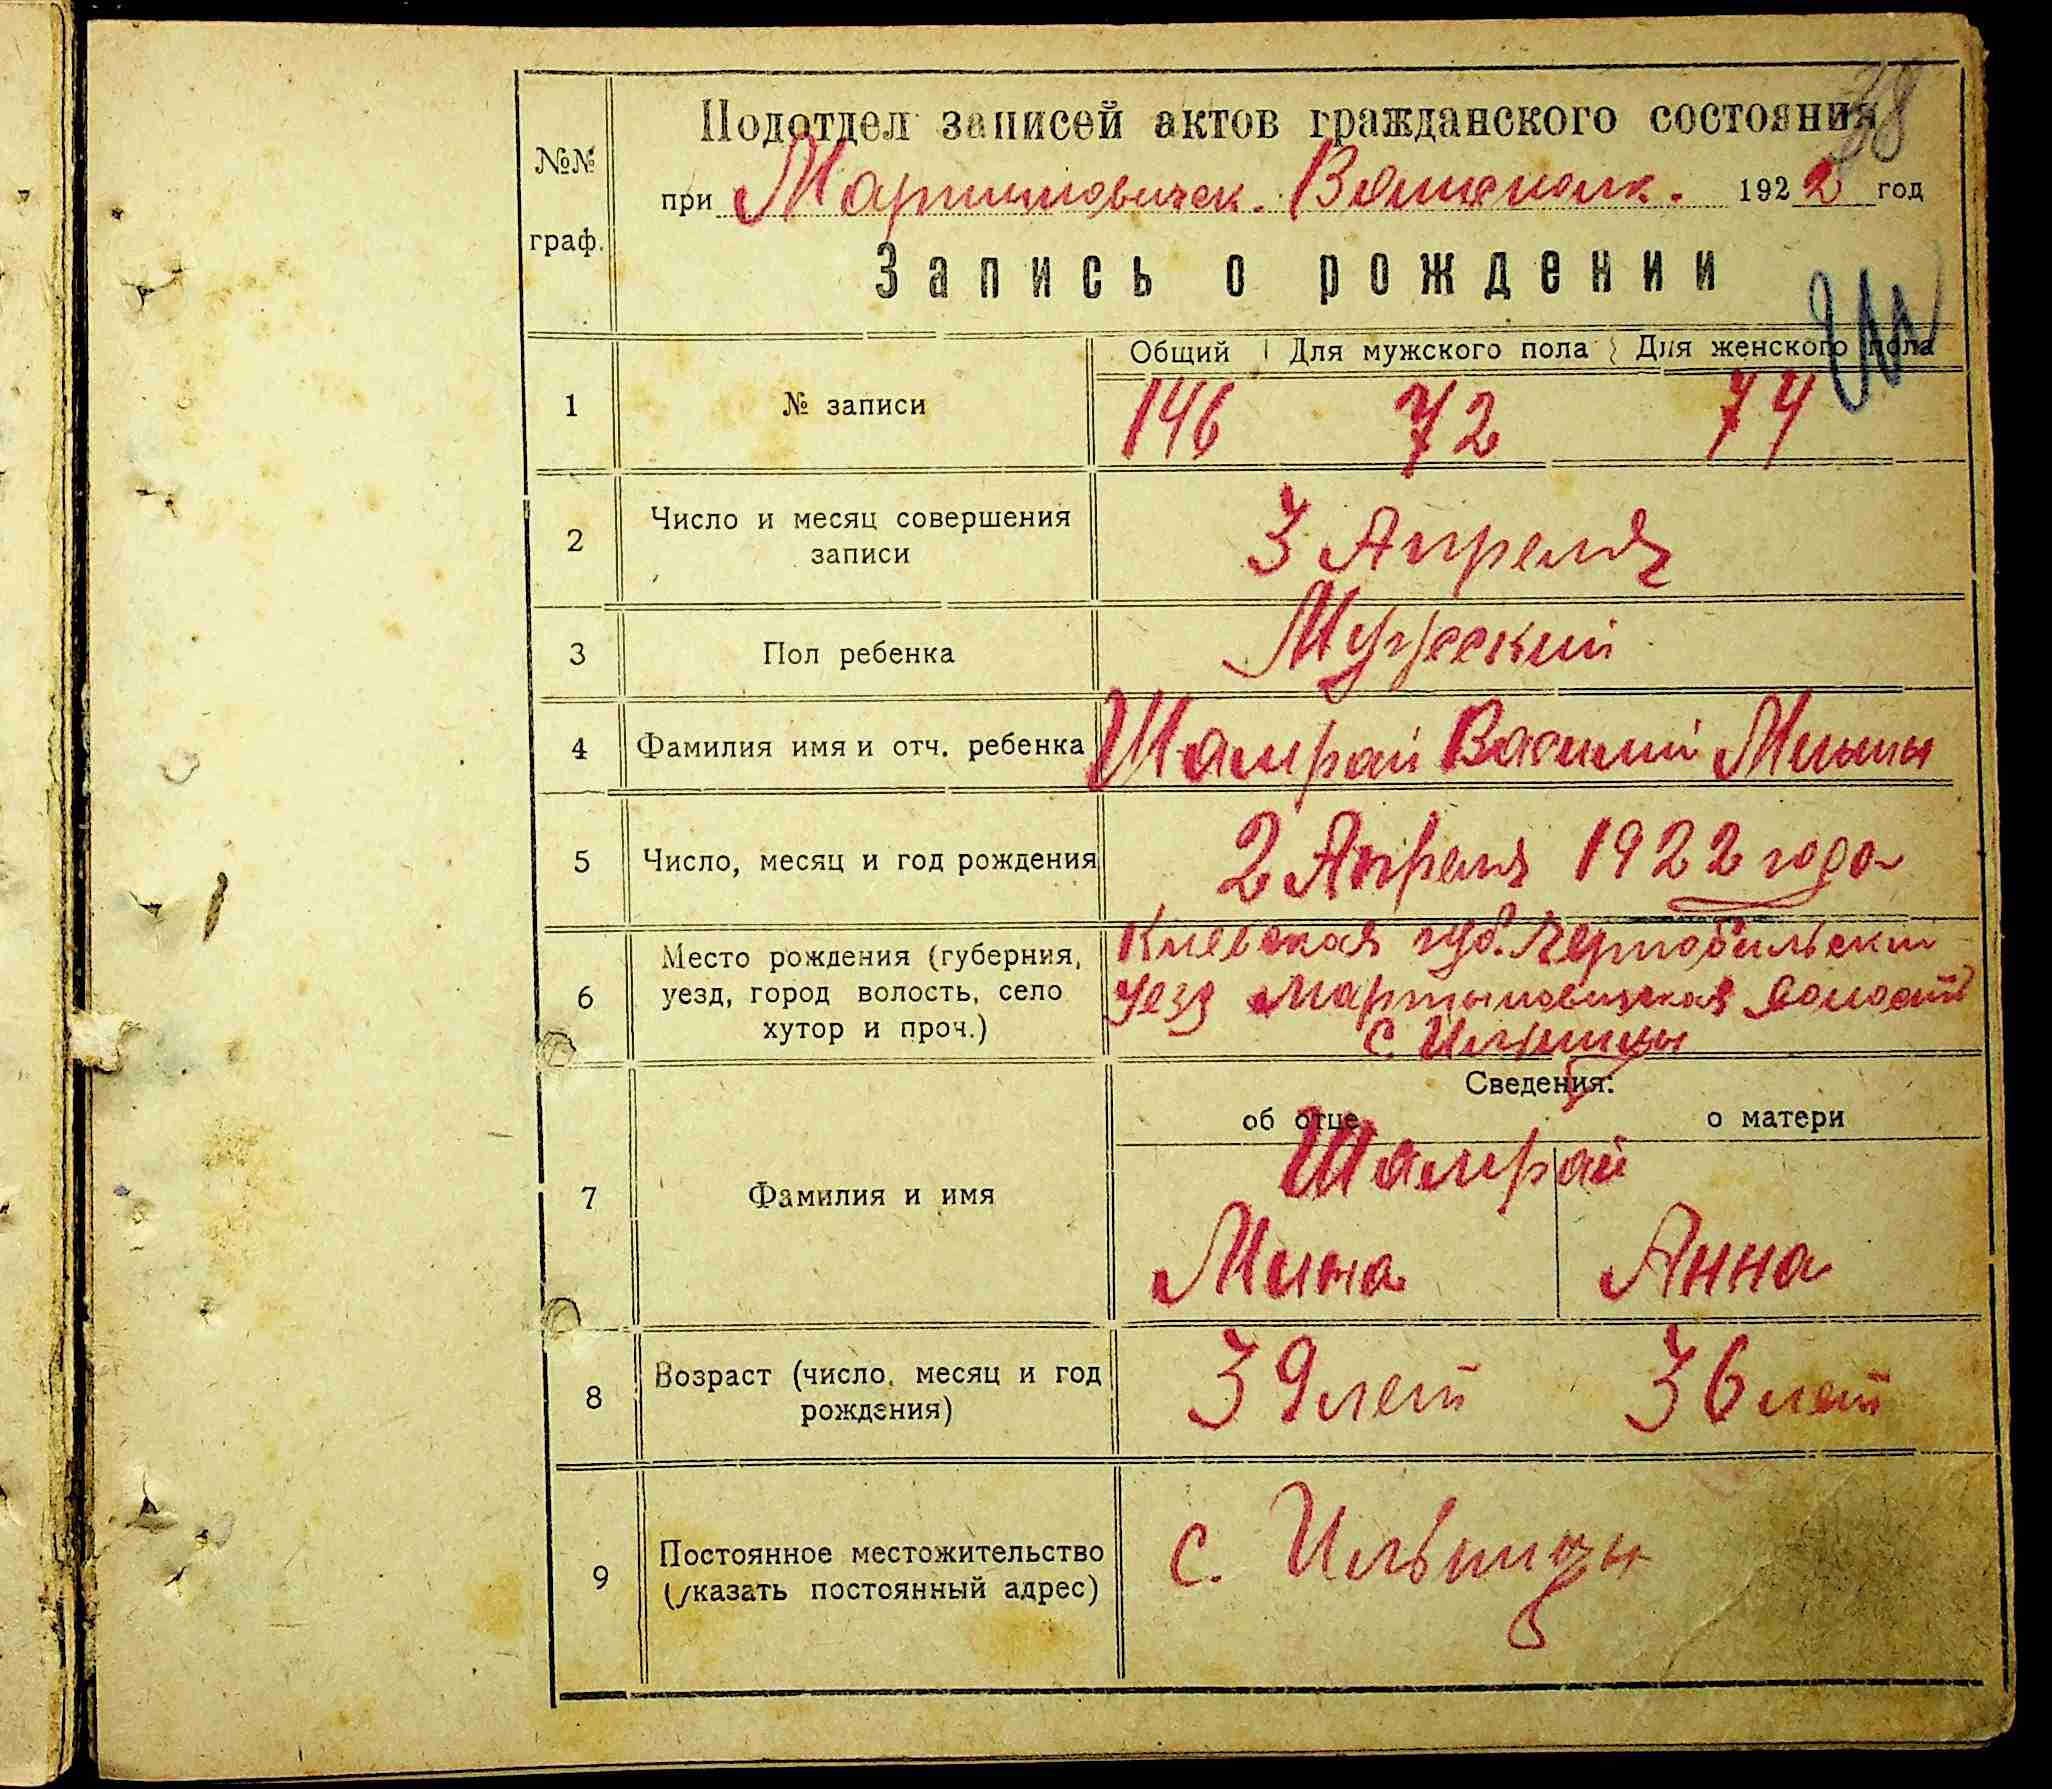 38
Подотдел записей актов гражданского состояния
№№ граф.
при Мартиновическ. Волисполк. 1922 год
Запись о рождении
Общий Для мужского пола Для женского пола
1 № записи 146 72 74
2 Число и месяц совершения записи 3 Апреля
3 Пол ребенка Мужеский
4 Фамилия имя и отч. ребенка Шамрай Василий Мины
5 Число, месяц и год рождения 2 Апреля 1922 года
6 Место рождения (губерния, уезд, город волость, село хутор и проч.)
Киевская губ. Чернобильский
уезд Мартыновицкая волость
с. Ильинцы
Сведения:
об отце о матери
7 Фамилия и имя
Шамрай
Мина Анна
8 Возраст (число, месяц и год рождения) 39 лет 36 лет
9 Постоянное местожительство (указать постоянный адрес) с. Ильинцы